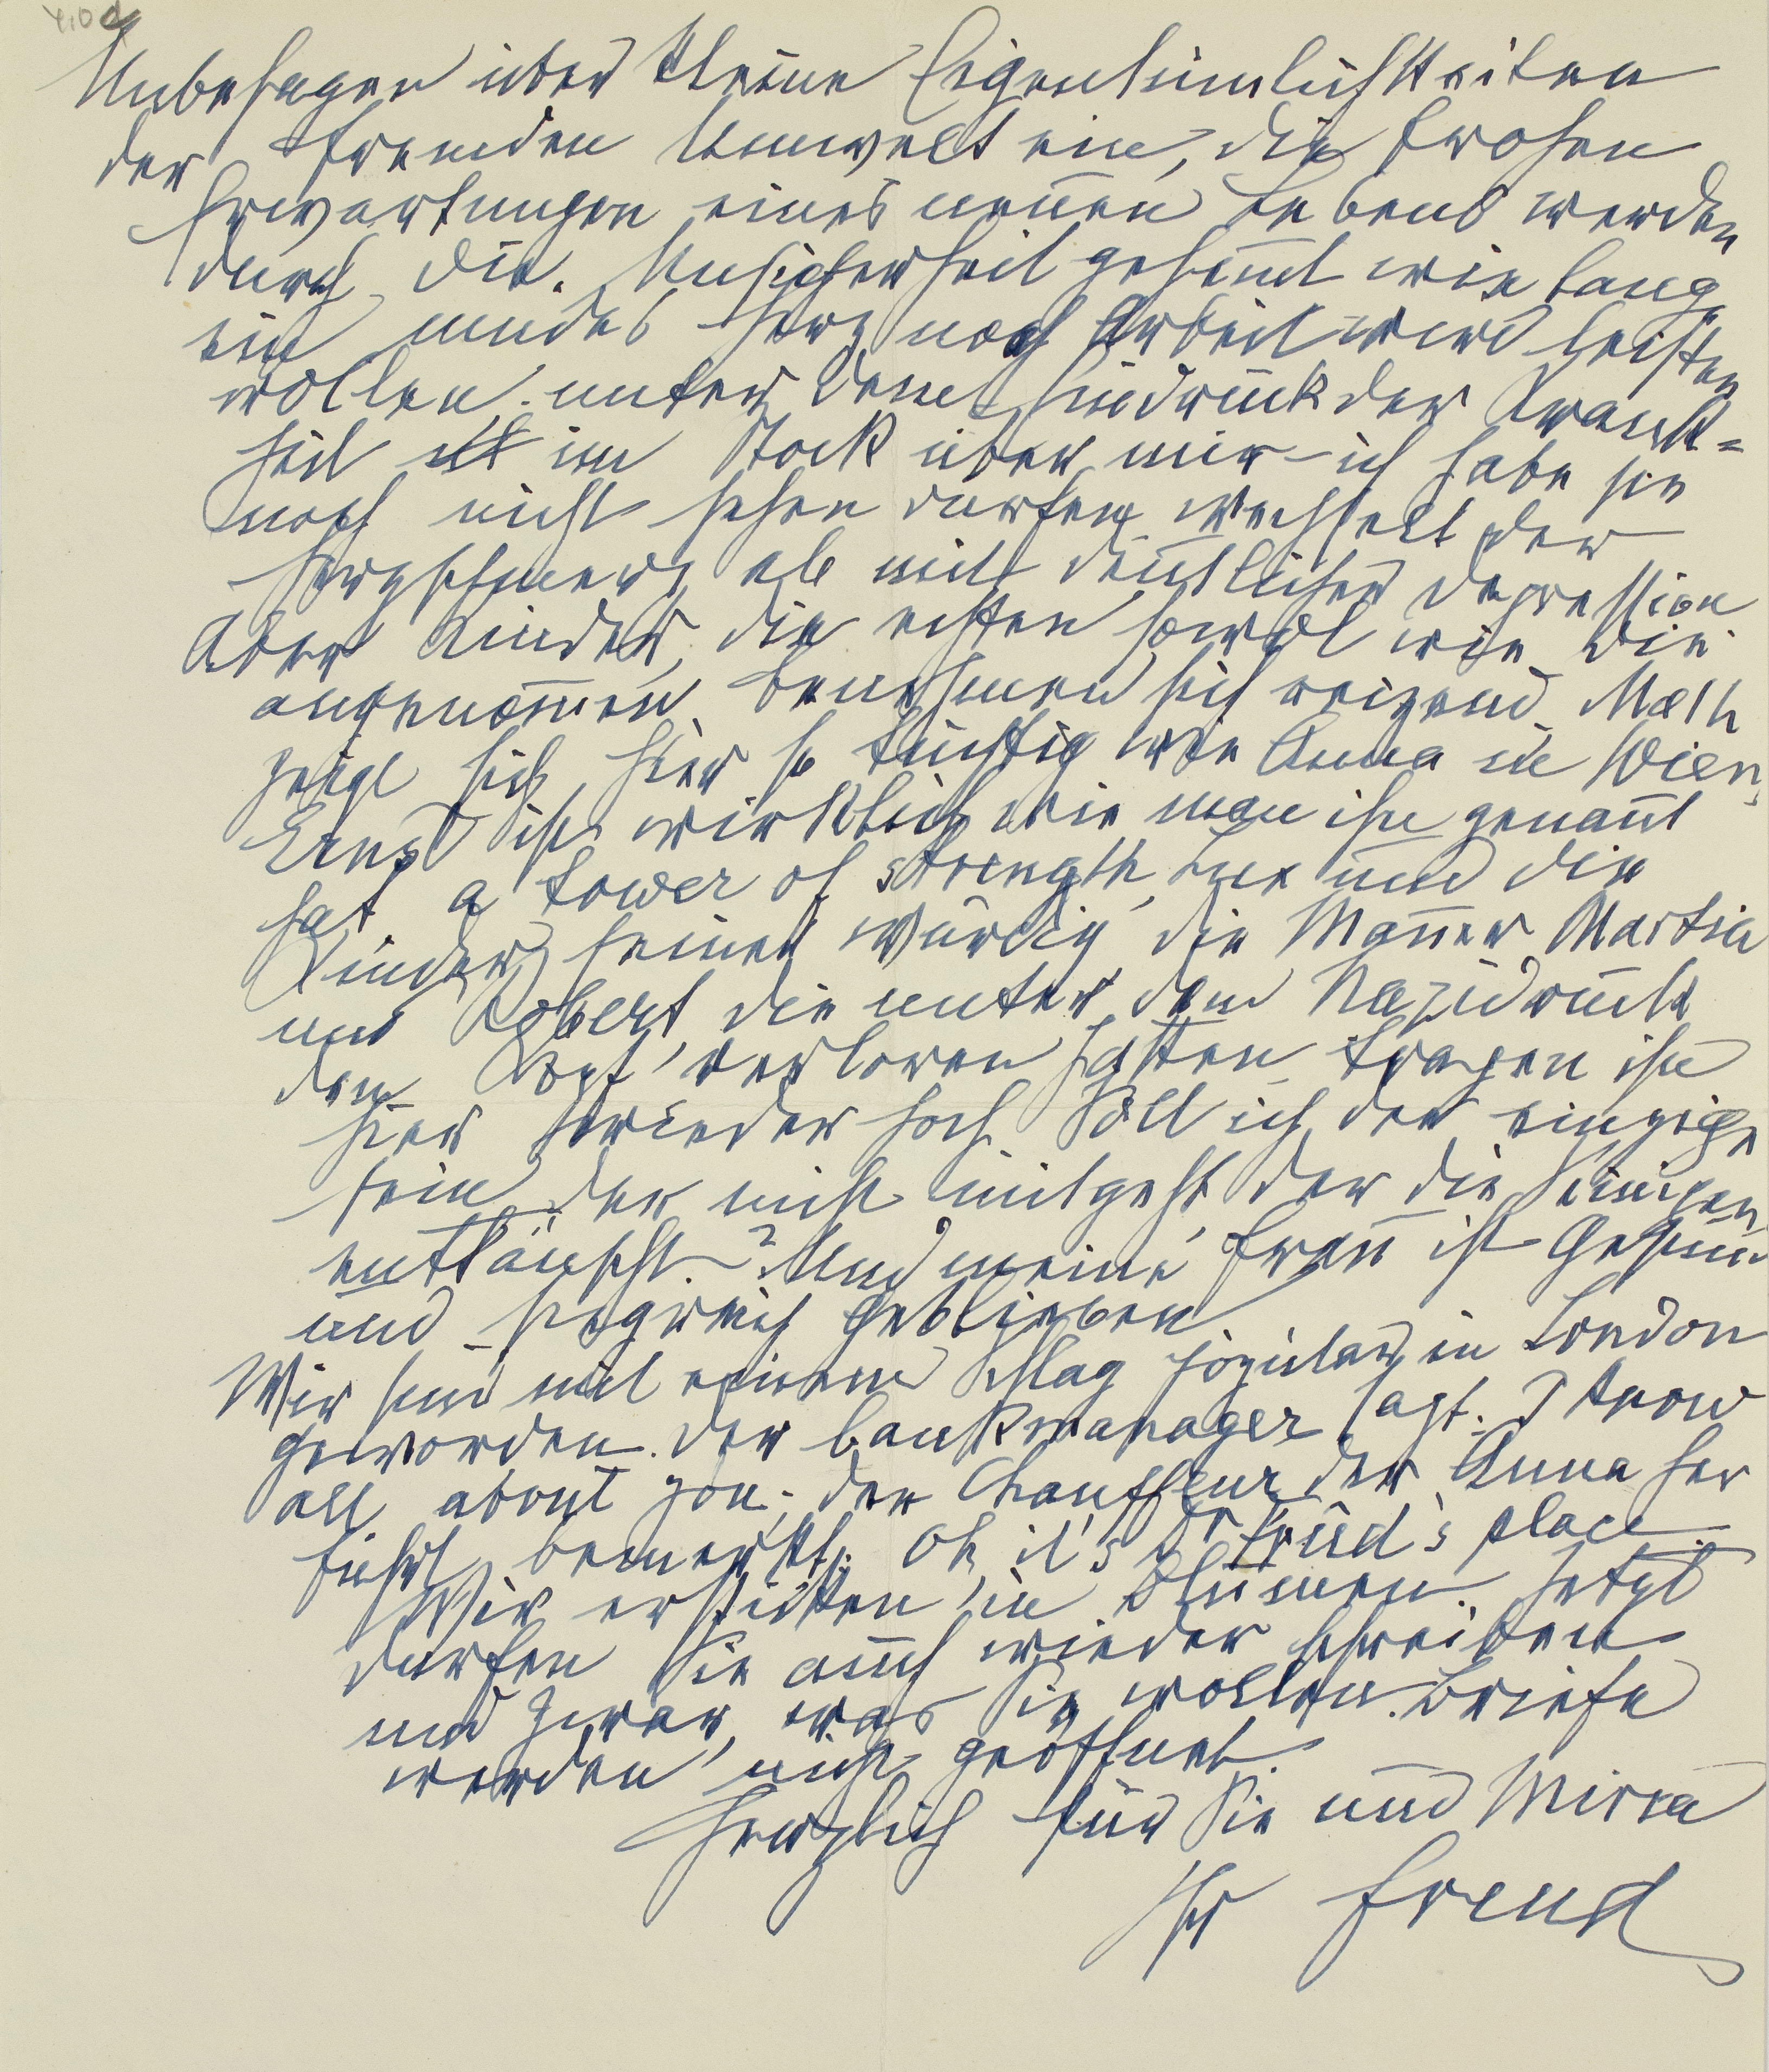 Unbehagen über kleine Eigentümlichkeiten
der fremden Umwelt ein, die frohen
Erwartungen eines neuen Lebens werden
durch die Unsicherheit gehemt wie lang
ein müdes Herz noch Arbeit wird leisten
wollen. unter dem Eindruck der Krank=
heit im Stock über mir – ich habe sie
noch nicht sehen dürfen – wechselt der
Herzschmerz ab mit deutlicher Depression
Aber Kinder, die echten sowol wie die
angenom̄en benehmen sich reizend. Math
zeigt sich hier so tüchtig wie Anna in Wien,
Ernst ist wirklich wie man ihn genan̄t
hat a tower of strength, Lux und die
Kinder seiner würdig, die Män̄er Martin
und Robert, die unter dem Nazidruck
den Kopf verloren hatten tragen ihn
hier wieder hoch. Soll ich der einzige
sein der nicht mitgeht, der die Seinigen
enttäuscht? Und meine Frau ist gesund
und siegreich geblieben
Wir sind mit einem Schlag populär in London
geworden. der bankmanager sagt: I know
all about you; der Chauffeur der Anna her
führt, bemerkt: Oh, it's Dr Freud's place.
Wir ersticken in Blumen. Jetzt
dürfen Sie auch wieder schreiben
und zwar, was Sie wollen. Briefe
werden nicht geöffnet.
Herzlich für Sie und Mirra
Ihr Freud